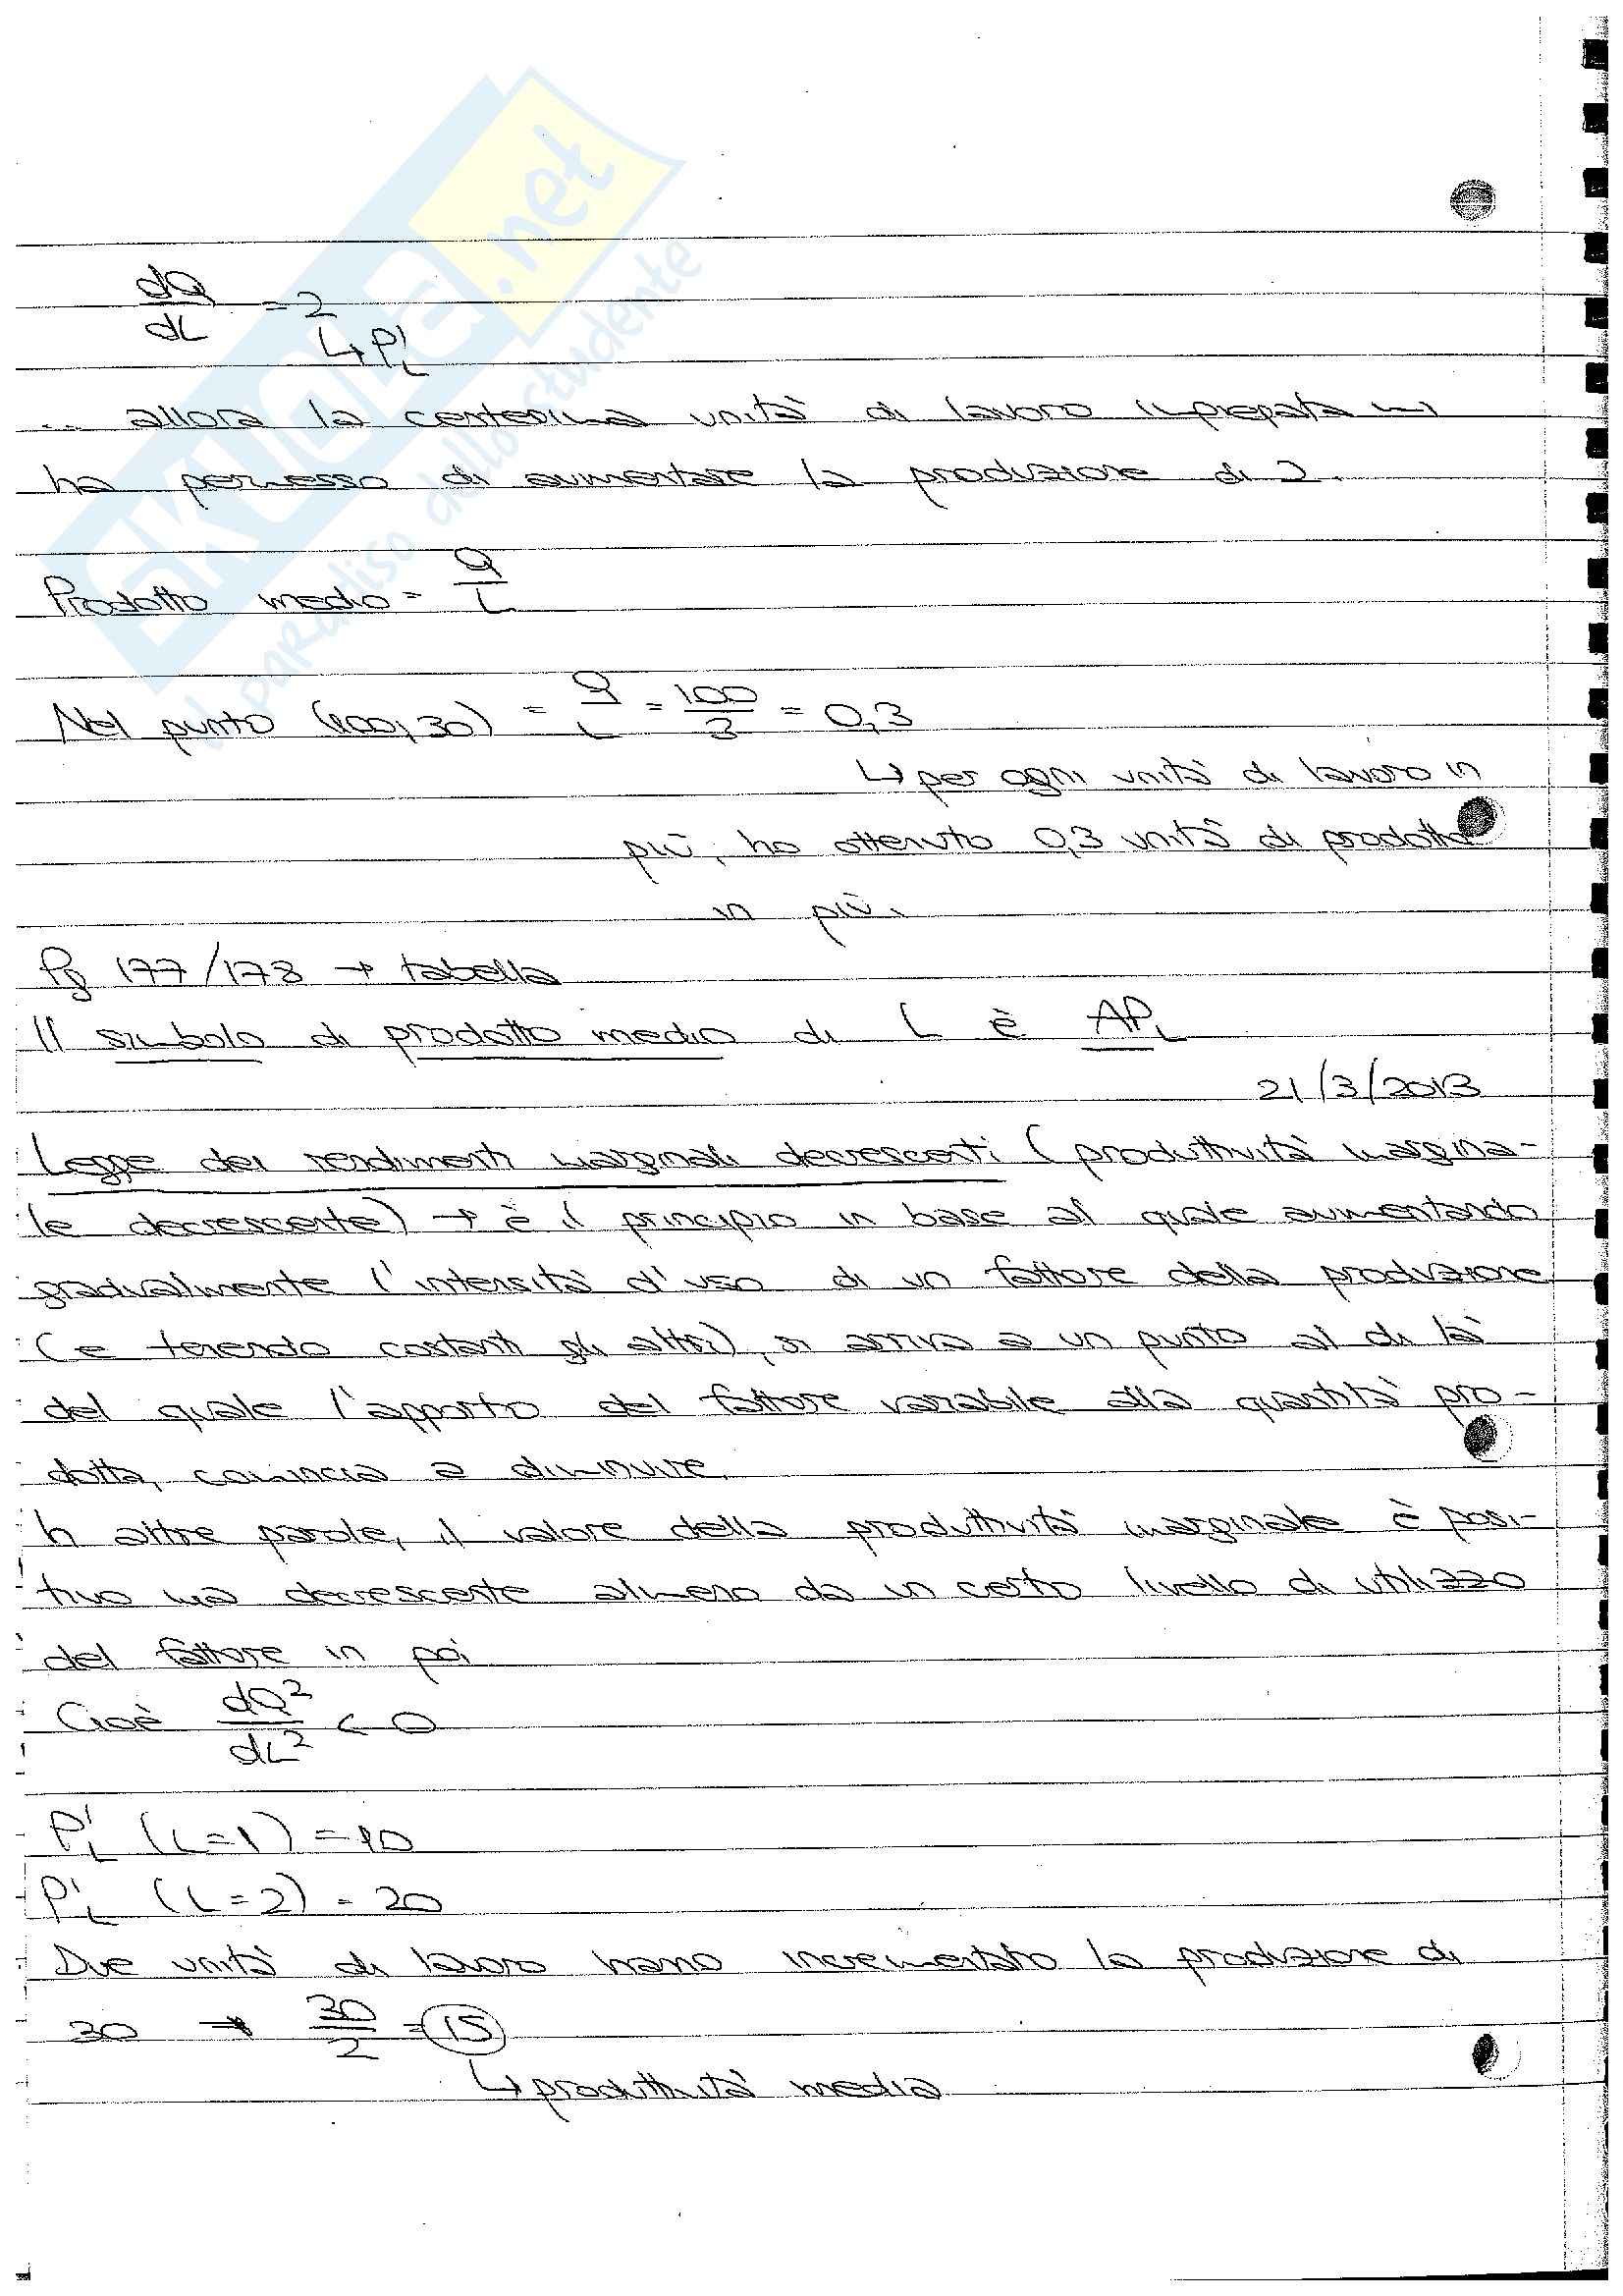 skuola.net
il paradiso dello studente
dQ/dL = 2
↳ P'L
... allora la centesima unità di lavoro impiegata (...)
ha permesso di aumentare la produzione di 2.
Prodotto medio = Q/L
Nel punto (100, 30) = Q/L = 100/3 = 0,3
↳ per ogni unità di lavoro in
più, ho ottenuto 0,3 unità di prodotto
in più.
Pg 177/178 → tabella
Il simbolo di prodotto medio di L è APL
21/3/2013
Legge dei rendimenti marginali decrescenti (produttività margina-
le decrescente) → è il principio in base al quale aumentando
gradualmente l'intensità d'uso di un fattore della produzione
(e tenendo costanti gli altri), si arriva a un punto al di là
del quale l'apporto del fattore variabile alla quantità pro-
dotta, comincia a diminuire.
In altre parole, il valore della produttività marginale è posi-
tivo ma decrescente almeno da un certo livello di utilizzo
del fattore in poi
Cioè dQ²/dL² < 0
P'L (L=1) = 10
P'L (L=2) = 20
Due unità di lavoro hanno incrementato la produzione di
30 → 30/2 = 15
↳ produttività media